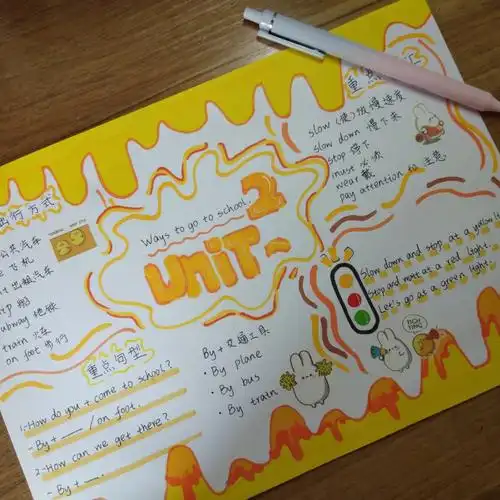 重点
slow (使)放慢速度
slow down 慢下来
stop 停下
must 必须
wear 戴
pay attention to 注意
Ways to go to school.
UNIT 2
出行方式
公共汽车
飞机
出租汽车
船
subway 地铁
train 火车
on foot 步行
重点句型
1-How do you + come to school?
- By + / on foot.
2-How can we get there?
- By + .
By + 交通工具
· By plane
· By bus
· By train
Slow down and stop at a yellow
Stop and wait at a red light.
Let's go at a green light.